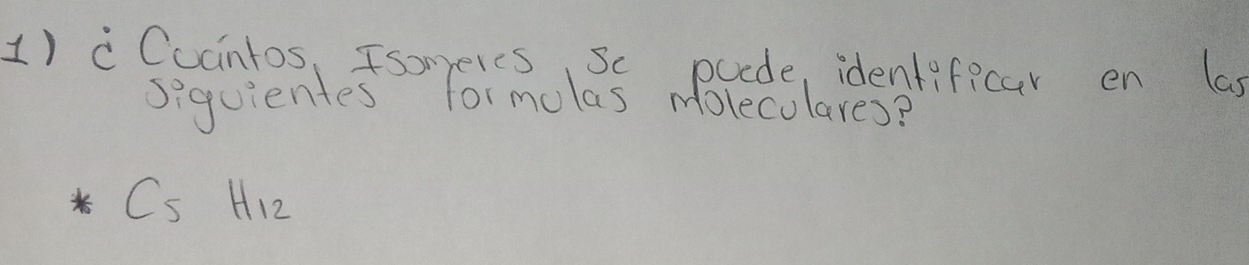 1) ¿ Cuántos Isomeres se puede identificar en las
siguientes formulas moleculares?
* C5 H12